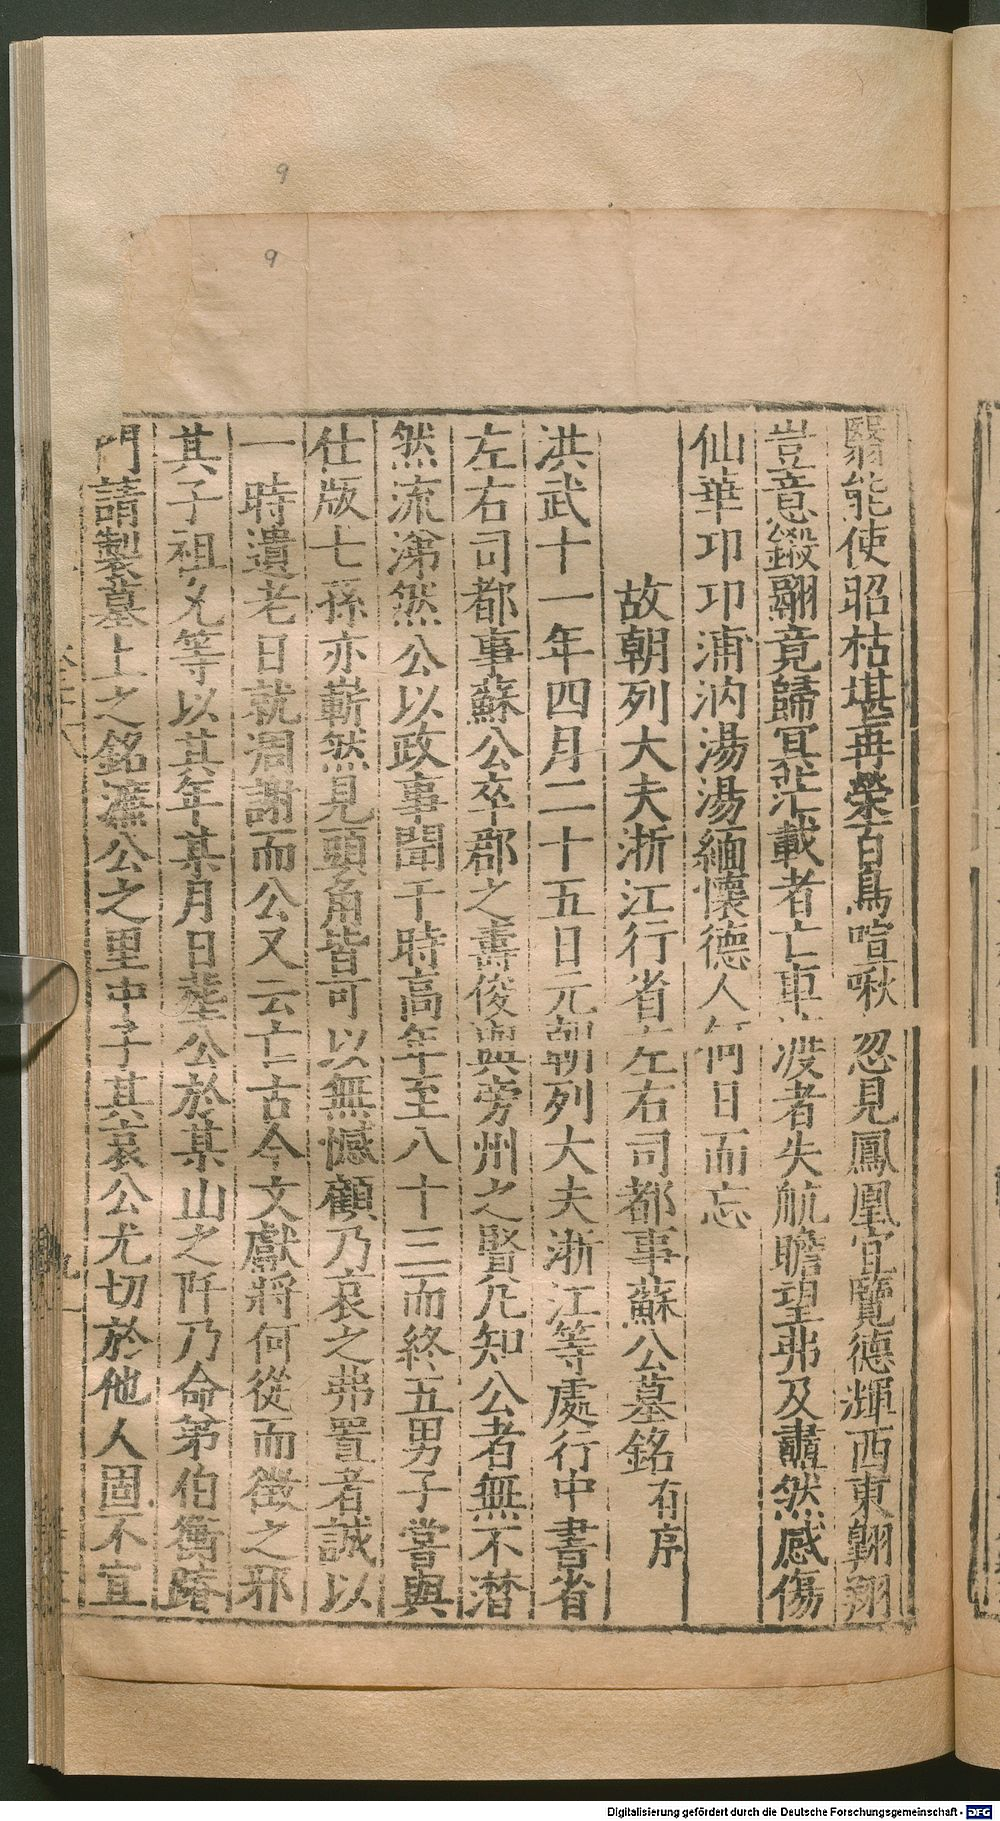 9
9
翳能使昭枯堪再榮百鳥喧啾忽見鳳凰宜覽德輝西東翱翔
豈意鎩翮竟歸冥茫載者亡車渡者失航瞻望弗及肅然感傷
仙華卭卭浦汭湯湯緬懷德人何日而忘
故朝列大夫浙江行省左右司都事蘇公墓銘有序
洪武十一年四月二十五日元朝列大夫浙江等處行中書省
左右司都事蘇公卒郡之耆俊與旁州之賢凡知公者無不潸
然流涕然公以政事聞于時高年至八十三而終五男子嘗與
仕版七孫亦嶄然見頭角皆可以無憾顧乃哀之弗置者誠以
一時遺老日就凋謝而公又云亡古今文獻將何從而徵之邪
其子祖允等以其年某月日塟公於某山之阡乃命弟伯衡蹐
門請製墓上之銘濂公之里中子其哀公尤切於他人固不宜
Digitalisierung gefördert durch die Deutsche Forschungsgemeinschaft - DFG